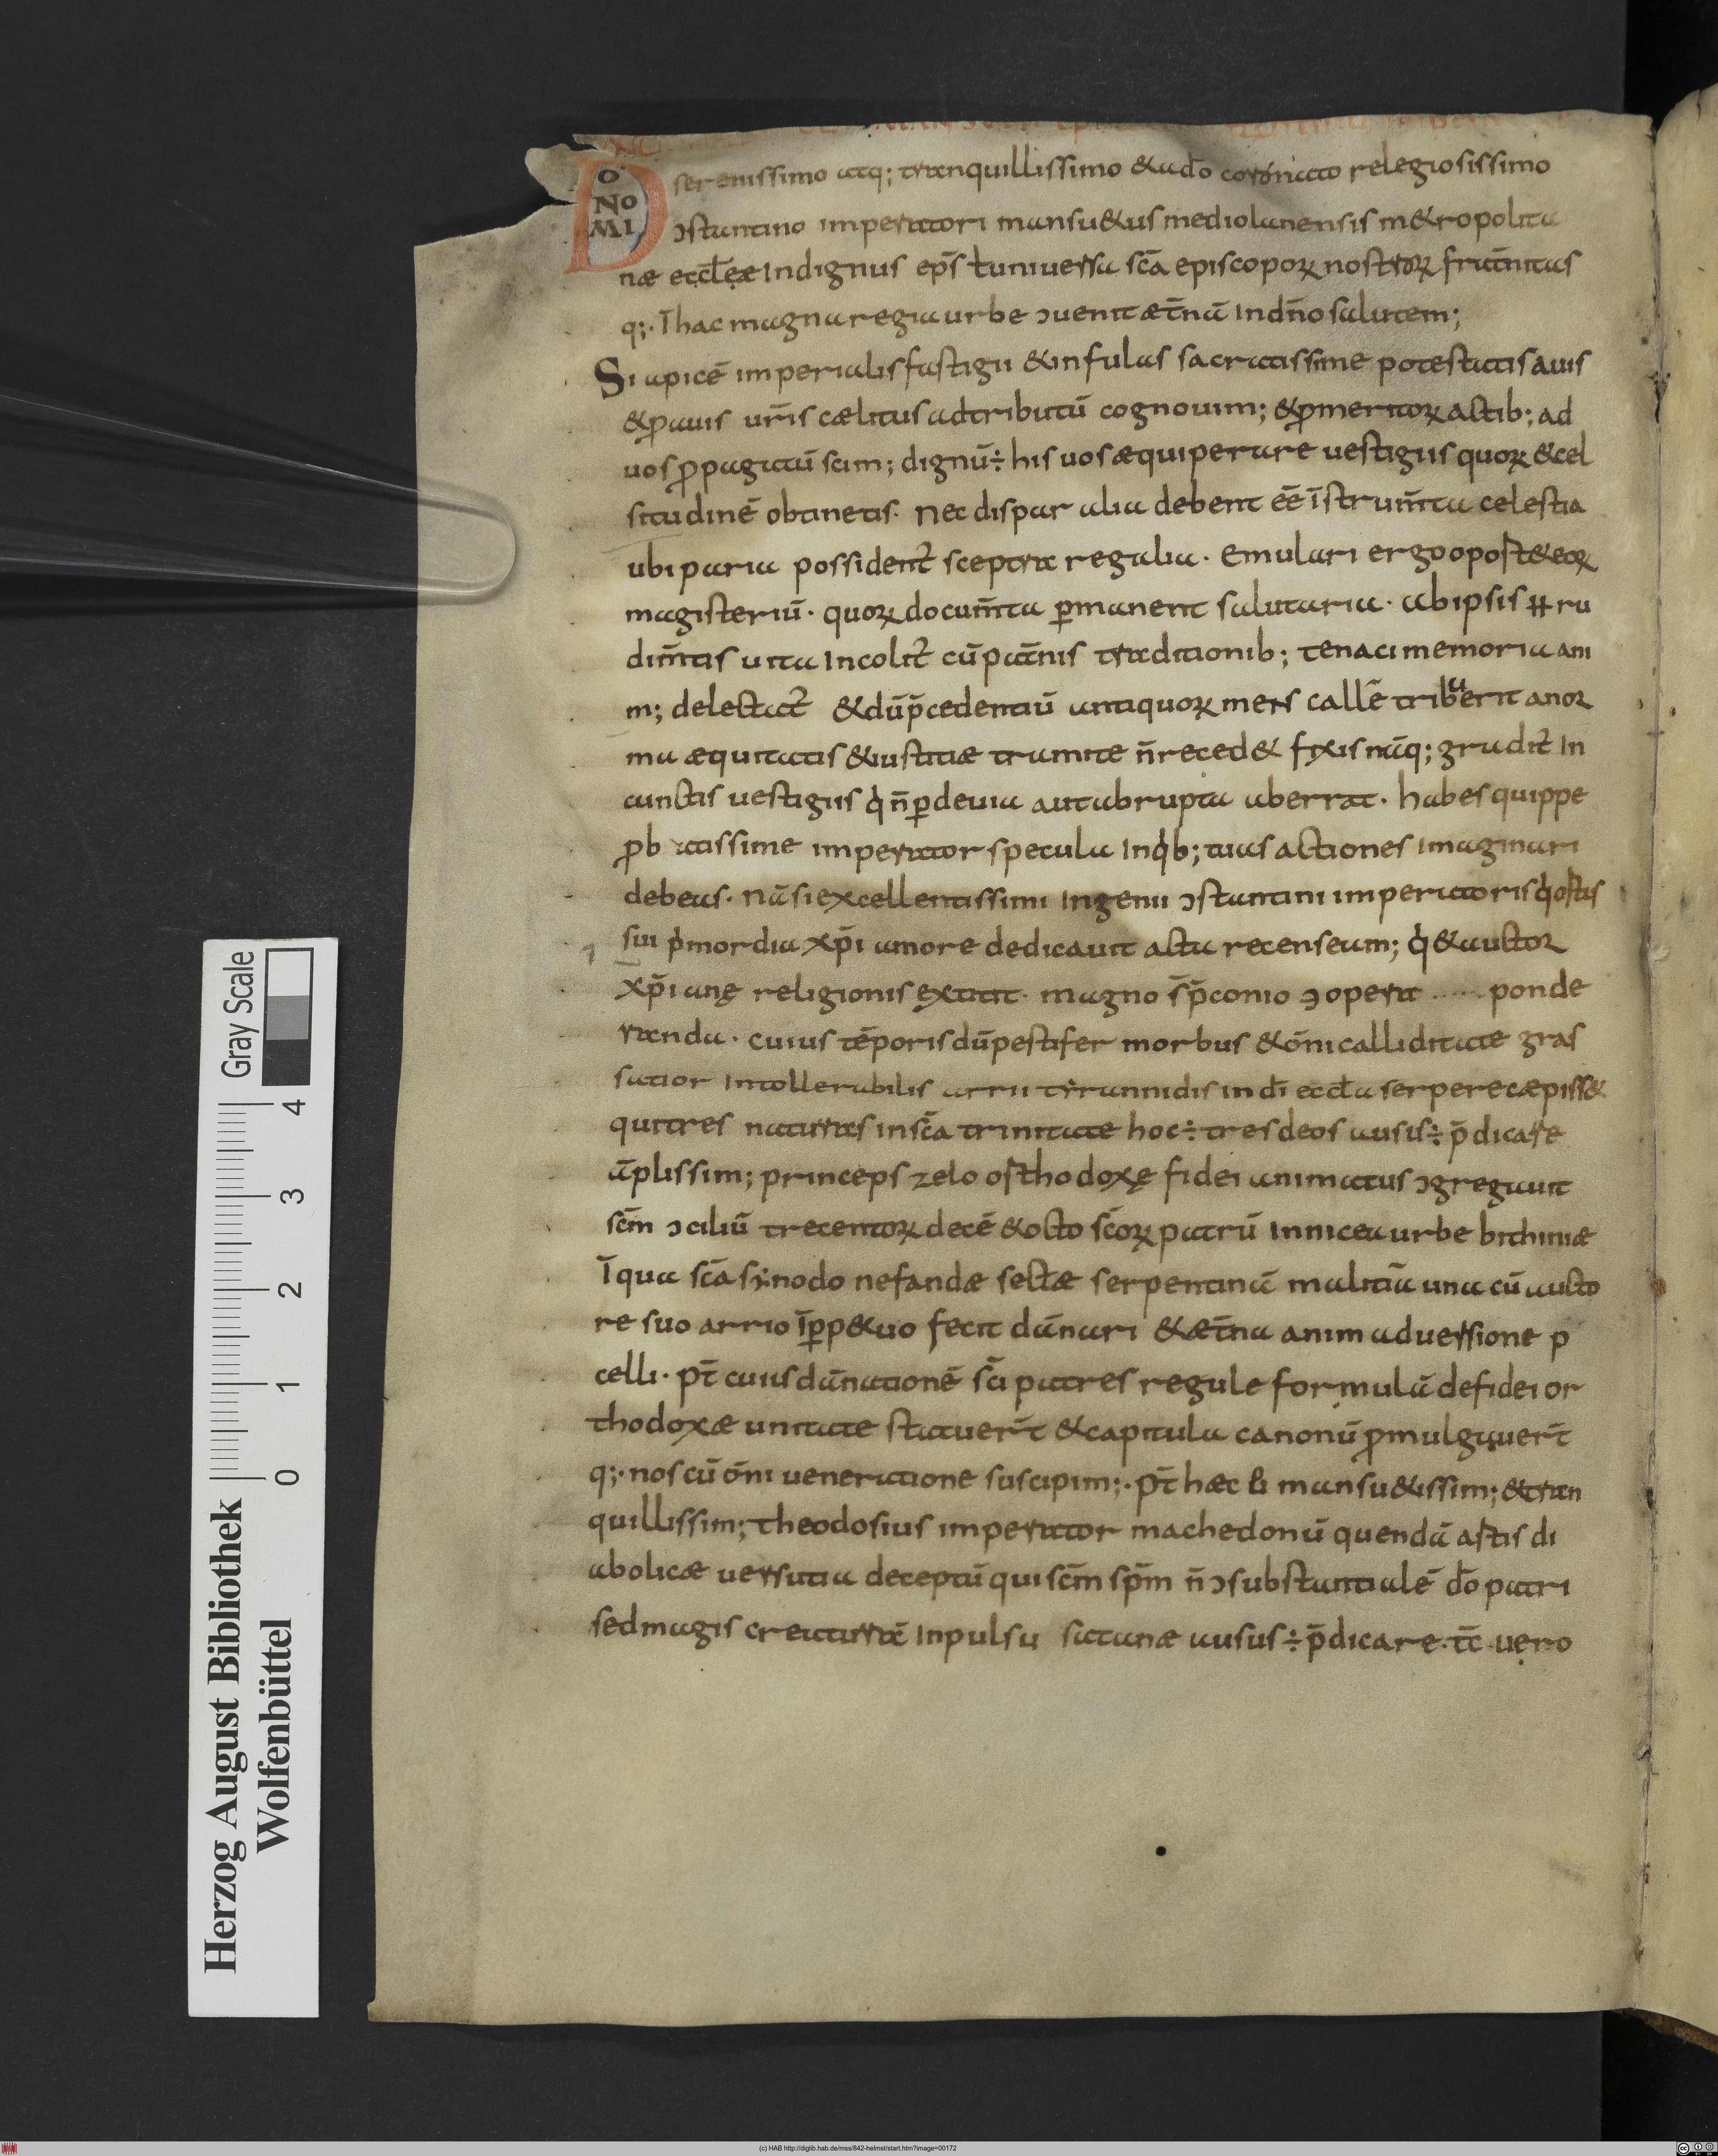 DOMINO serenissimo atq; tranquillissimo & a do̅ coronato relegiosissimo
ↄstantino imperatori mansu&us mediolanensis m&ropolita
næ eccl̅eæ Indignus ep̅s & uniuersa sc̅a episcoporꝝ nostrorꝝ frat̅nitas
q;· I̅ hac magna regia urbe ↄuenit æt̅nā In dn̅o salutem;
Si apicē imperialis fastigii & infulas sacratissime potestatis auis
& ꝓauis ur̅is cælitus adtributū cognouim; & ꝓ meritorꝝ actib; ad
uos ꝓpagatū scim; dignū ÷ his uos æquiperare uestigiis quorꝝ & cel
situdinē obtinetis· Nec dispar alia debent ēē ī̅strum̅ta celestia
ubi paria possident̅ sceptra regalia· Emulari ergo oport& eorꝝ
magisteriū· quorꝝ docum̅ta ꝑmanent salutaria· ab ipsis ru
dim̅tis uita Incolit̅ cū pat̅nis traditionib; tenaci memoria ani
m; delectat̅ & dū p̅cedentiū antiquorꝝ mens callē tribuerit a nor
ma æquitatis & iustitiæ tramite n̅ reced& fixis nāq; gradit̅ In
cunctis uestigiis q̇ n̅ ꝑ deuia aut abrupta aberrat· habes quippe
ꝓb atissime imperator specula In q̇b; tuas actiones Imaginari
debeas· Nā si excellentissimi Ingenii ↄstantini imperatoris q̇
sui pͥmordia xp̅i amore dedicauit acta recenseam; q̇ & auctor
xp̅i anę religionis extitit· magno p̅conio ↄ opera ponde
randa· cuius tēporis dū pestifer morbus & ōmi calliditate gras
satior Intollerabilis arrii tẏrannidis in di̅ eccl̅a serpere cæpiss&
qui tres naturas in sc̅a trinitate hoc ÷ tres deos ausus ÷ p̅dicare
āplissim; princeps zelo orthodoxę fidei animatus ↄgregauit
sc̅m ↄciliū trecentorꝝ decē & octo sc̅orꝝ patrū In nicea urbe bithiniæ
I̅ qua sc̅a sẏnodo nefandæ sectæ serpentinā malitiā una cū aucto
re suo arrio ī̅ ꝑp&uo fecit dānari & æt̅na animaduersione p
celli· pt̅ cuius dānationē sc̅i patres regule formulā de fidei or
thodoxæ unitate statuer̅t & capitula canonū ꝓmulgauer̅t
q;· nos cū ōni ueneratione suscipim;· Pt̅ hæc & mansu&issim; & tran
quillissim; theodosius imperator machedoniū quendā astis di
abolicæ uersutia deceptū qui sc̅m sp̅m n̅ ↄsubstantialē do̅ patri
sed magis creaturā Inpulsu satanæ ausus ÷ p̅dicare· tc̅ uero
Herzog August Bibliothek
Wolfenbüttel
Gray Scale
0 1 2 3 4
(c) HAB http://diglib.hab.de/mss/842-helmst/start.htm?image=00172